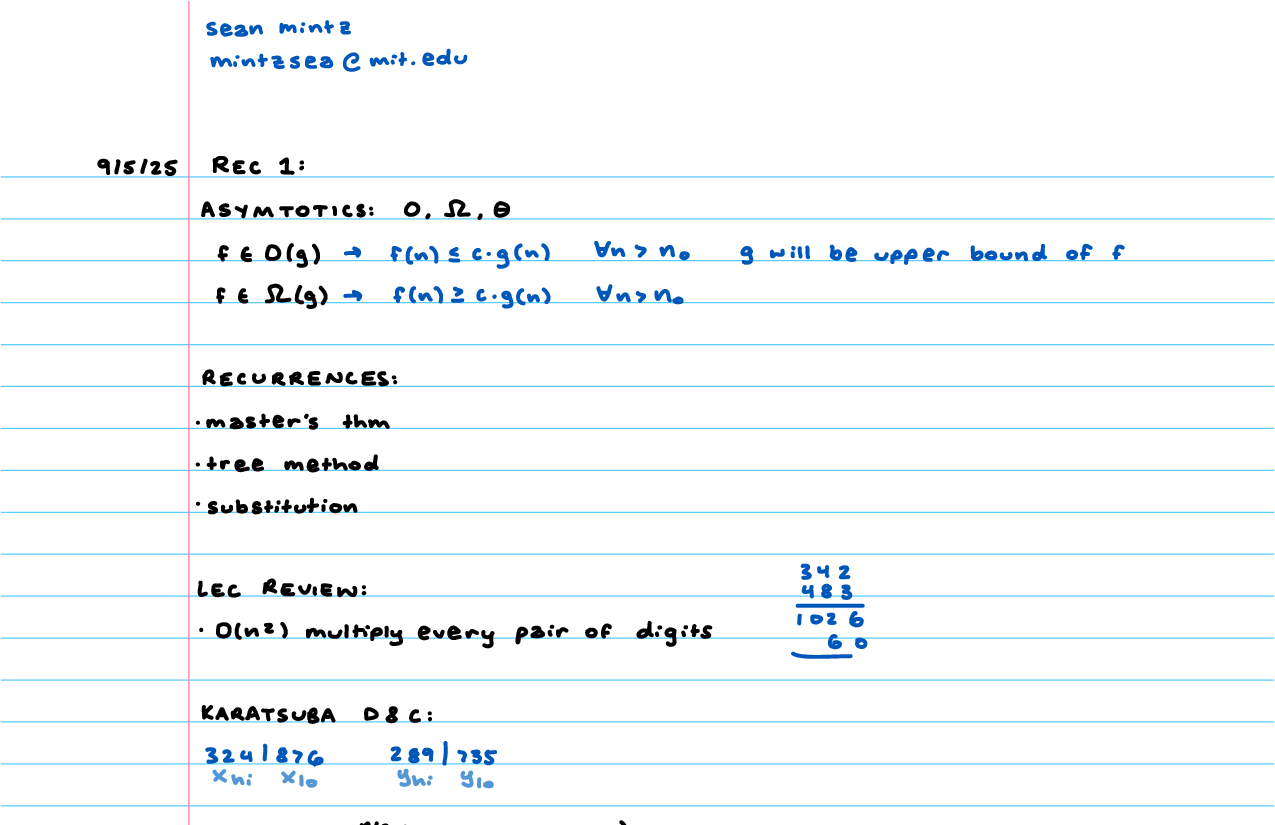 sean mintz
mintzsea@mit.edu
9/5/25 REC 1:
ASYMTOTICS: O, Ω, Θ
f ∈ O(g) → f(n) ≤ c·g(n) ∀n > n₀ g will be upper bound of f
f ∈ Ω(g) → f(n) ≥ c·g(n) ∀n > n₀
RECURRENCES:
·master's thm
·tree method
·substitution
342
483
LEC REVIEW:
1026
· O(n²) multiply every pair of digits
60
KARATSUBA D & C:
324|876 289|735
x_hi x_lo y_hi y_lo